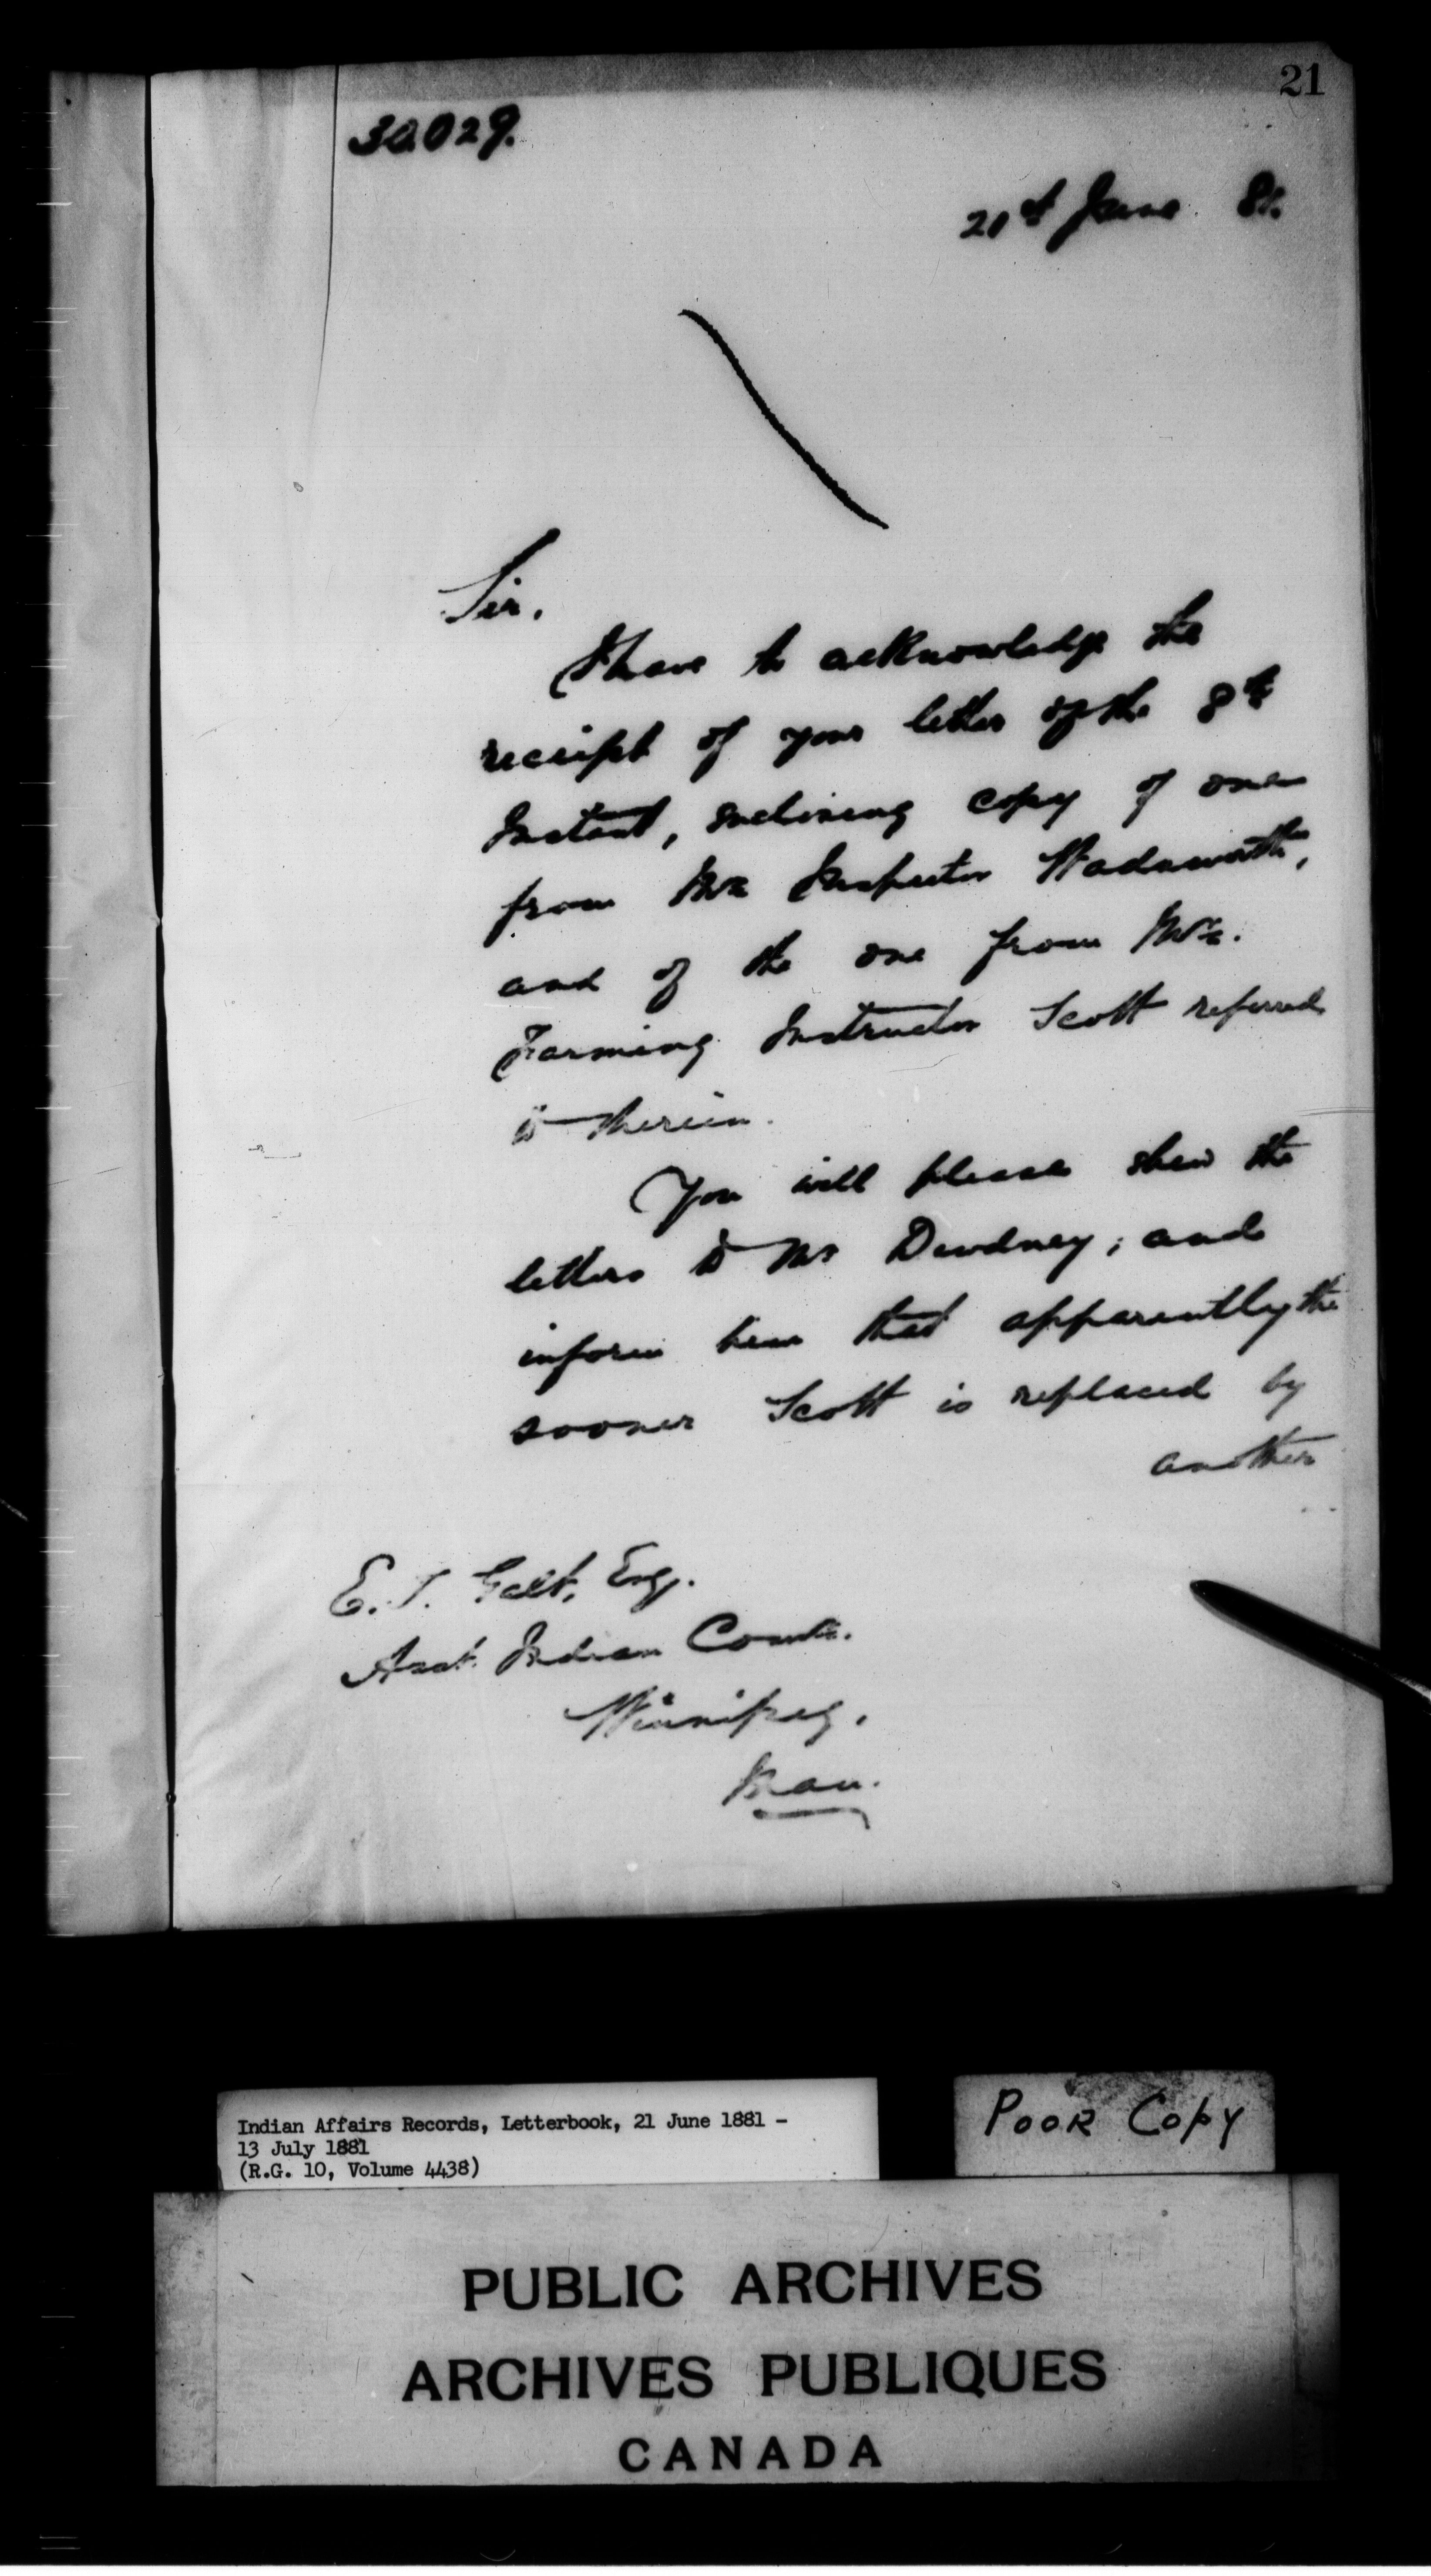 21
30029.
21st June 81.
Sir,
I have to acknowledge the
receipt of your letter of the 8th
Instant, enclosing copy of one
from Mr. Inspector Wadsworth,
and of the one from Mr.
Farming Instructor Scott referred
to therein.
You will please shew the
letters to Mr Dewdney; and
inform him that apparently the
sooner Scott is replaced by
another
E. T. Galt, Esq.
Asst. Indian Commr.
Winnipeg,
Man.
Indian Affairs Records, Letterbook, 21 June 1881 -
13 July 1881
(R.G. 10, Volume 4438)
POOR COPY
PUBLIC ARCHIVES
ARCHIVES PUBLIQUES
CANADA